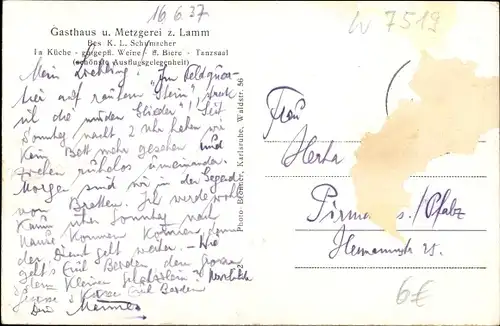 16.6.37
W 7519
Gasthaus u. Metzgerei z. Lamm
Bes. K. L. Schumacher
1a Küche - gutgepfl. Weine u. Biere - Tanzsaal
(schönste Ausflugsgelegenheit)
Mein Liebling! "Im Feldquar-
tier auf rauhem Stein" streck
ich die müden Glieder"! Seit
Sonntag nacht 2 Uhr haben wir
kein Bett mehr gesehen und
ziehen ruhelos umeinander.
Morgen sind wir in der Gegend
von Bretten. Ich werde wohl
kaum über Sonntag nach
Hause kommen können, denn
der Dienst geht weiter. - Wie
geht's Euch Beiden, dem
Kleinen
Grüsse & Küsse Euch Beiden
Dein
Photo-Elsässer, Karlsruhe, Waldstr. 56
Frau
Herta
Pirmasens/Pfalz
25.
6€